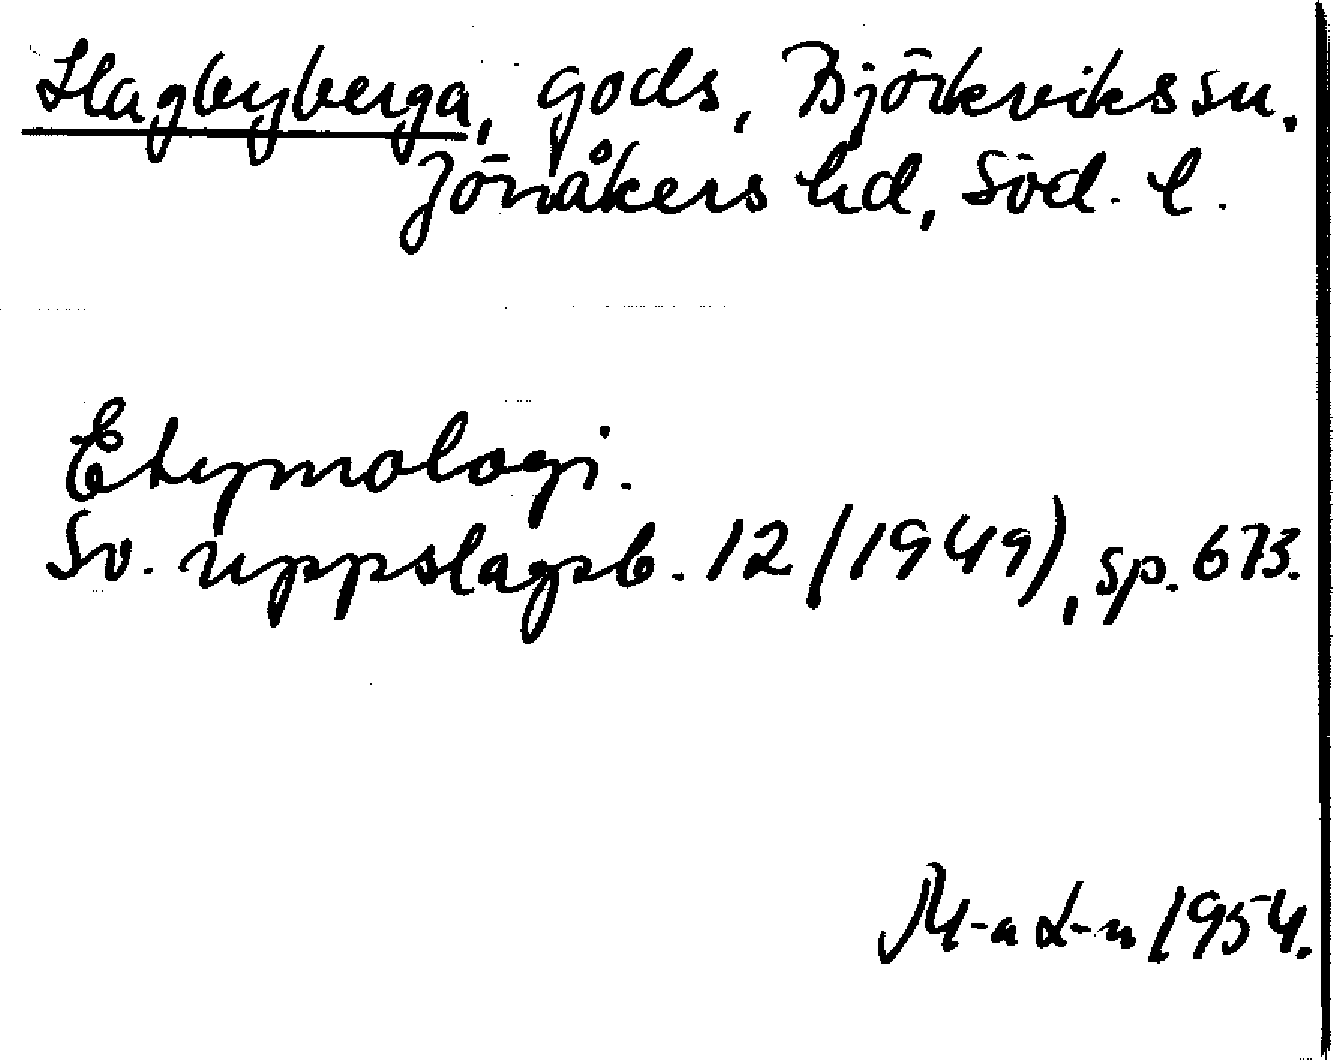 Hagbyberga, gods, Björkviks sn.
Jönåkers hd, Söd. l.
Etymologi.
Sv. uppslagsb. 12 (1949), sp. 673.
M-a L-n 1954.